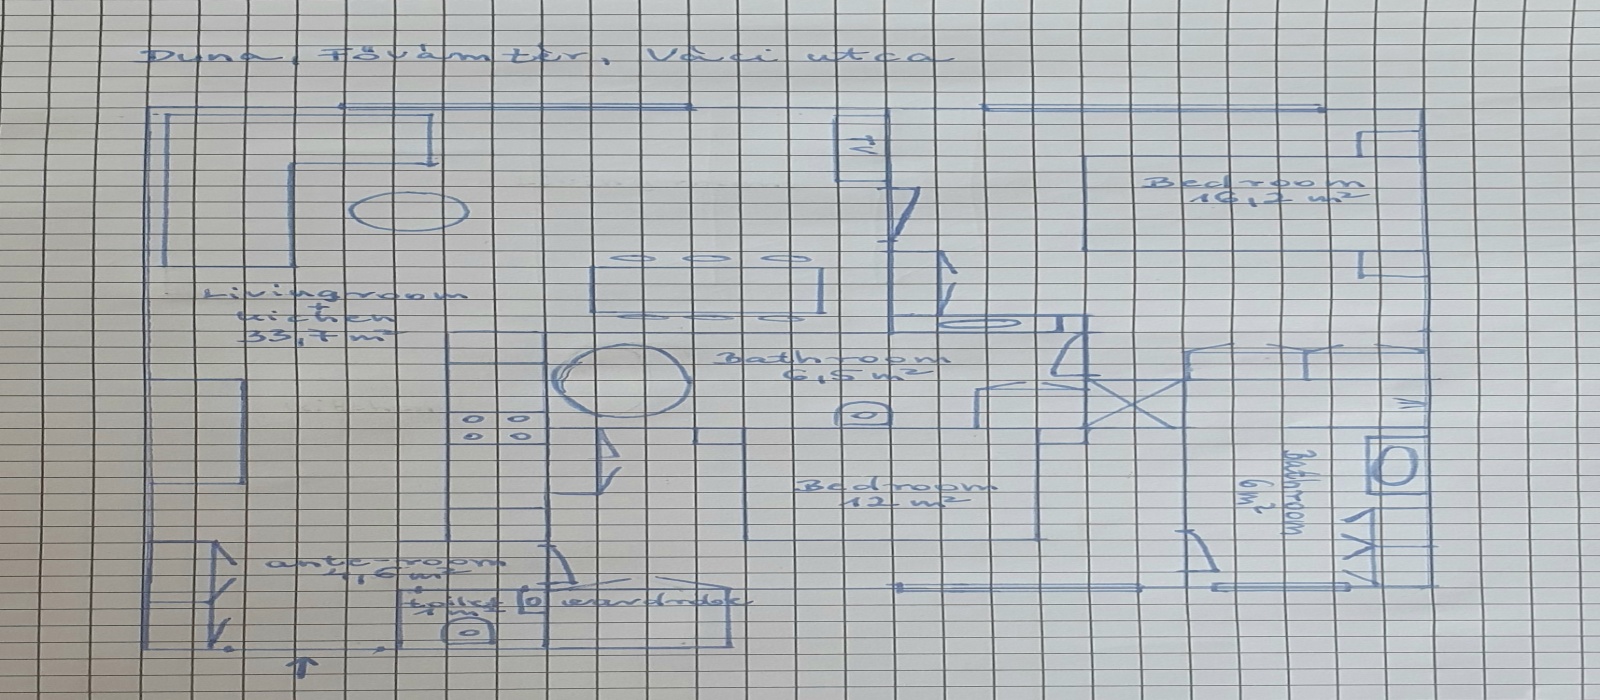 Duna, Fővám tér, Váci utca
TV
Bedroom
16,2 m²
Livingroom
kitchen
33,7 m²
Bathroom
6,5 m²
Bedroom
12 m²
Bathroom
6 m²
ante-room
toilet
1 m²